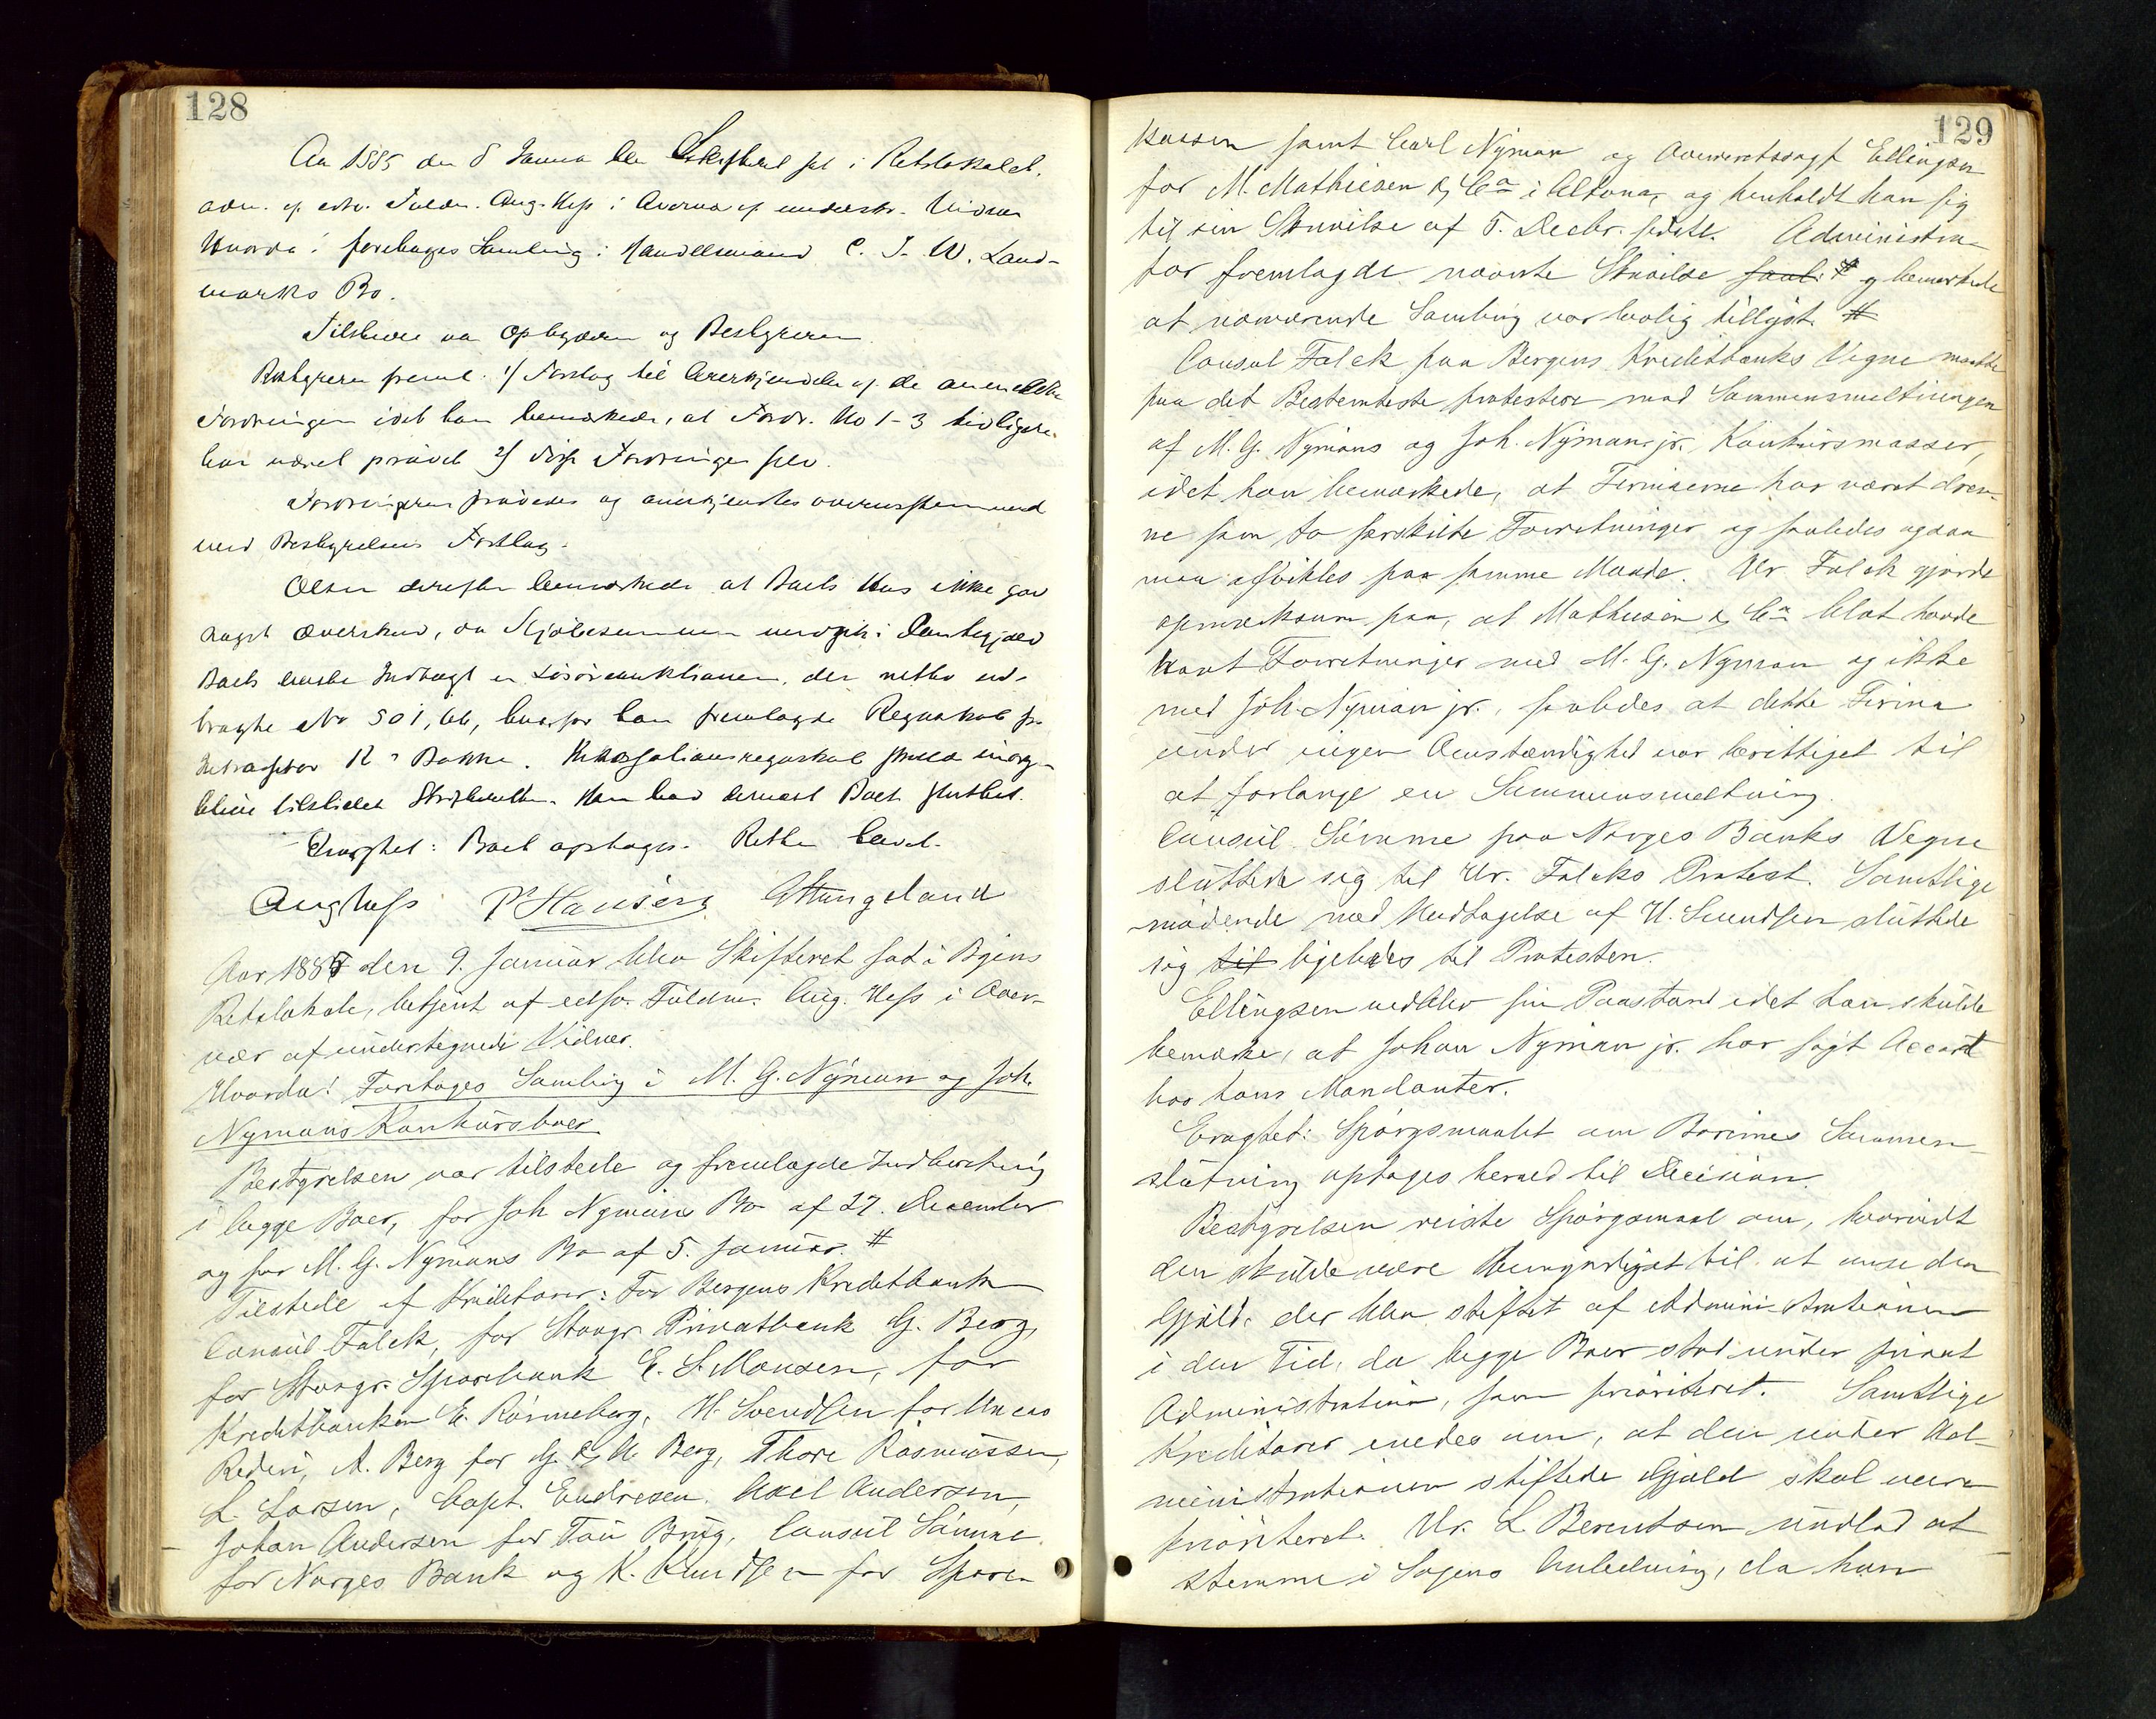 128
Aar 1885 den 8 Januar blev Skifteret sat i Retslokalet,
adm. af edsv. Fuldm. Aug. Hess i Overvær af underskr. Vidner
Hvorda: foretages Samling i Handelsmand C. J. W. Land-
marks Bo.
Tilstede var Opbyderen og Bestyreren.
Bestyreren freml. 1/ Forslag til Anerkjendelse af de anmeldte
Fordringer idet han bemærkede, at Fordr. No 1-3 tidligere
har været prøvet 2/ disse Fordringer selv.
Fordringerne prøvedes og anerkjendtes overensstemmende
med Bestyrelsens Forslag.
Olsen derefter bemærkede at Boets Hus ikke gav
noget Overskud, da Kjøbesummen medgik i Pantegjæld
Boets eneste Indtægt er Løsøreauktionen, der netto ud-
bragte Kr 501,66, hvorfor han fremlagde Regnskab fra
Inkassator R. Bakke. Realisationsregnskab skulde imorgen
blive tilstillet Skifteretten. Han bad dernæst Boet sluttet.
Eragtet: Boet optages. Retten hævet.
Aug Hess P Hansen G Hungeland
Aar 1885 den 9. Januar blev Skifteret sat i Byens
Retslokale, betjent af edsv. Fuldm. Aug. Hess i Over-
vær af undertegnede Vidner.
Hvorda! Foretages Samling i M. G. Nyman og Joh.
Nymans Konkursboer
Bestyrelsen var tilstede og fremlagde Indberetning
i begge Boer, for Joh Nymans Bo af 27. December
og for M. G. Nymans Bo af 5. Januar. #
Tilstede af Kreditorer: For Bergens Kreditbank
Consul Falck, for Stavgr. Privatbank G. Berg,
for Stavgr. Sparebank E. S. Monsen, for
Kreditbanken E. Rønneberg, H. Svendsen for
Rederi, A. Berg for G. & A. Berg, Thore Rasmussen,
L. Larsen, Capt. Endresen. Axel Andersen,
Johan Andersen for Tou Brug, Consul Sømme
for Norges Bank og K. Knudsen for Spare-
129
kassen samt Carl Nyman og Overretssagf Ellingsen
for M. Mathiesen & Co i Altona, og henholdt han sig
til sin Skrivelse af 5. Decbr. sidstl. Administra-
tor fremlagde nævnte Skrivelse samt # og bemærkede
at nærværende Samling var lovlig tillyst. #
Consul Falck paa Bergens Kreditbanks Vegne maatte
paa det Bestemteste protestere mod Sammensmeltningen
af M. G. Nymans og Joh. Nyman jr. Konkursmasser,
idet han bemærkede, at Firmaerne har været drev-
ne som to særskilte Forretninger og saaledes ogsaa
maa afvikles paa samme Maade. Hr. Falck gjorde
opmærksom paa, at Mathiesen & Co blot havde
havt Forretninger med M. G. Nyman og ikke
med Joh. Nyman jr., saaledes at dette Firma
under ingen Omstændighed var berettiget til
at forlange en Sammensmeltning.
Consul Sømme paa Norges Banks Vegne
sluttede sig til Hr. Falcks Protest. Samtlige
mødende med Undtagelse af H. Svendsen sluttede
sig til ligeledes til Protesten.
Ellingsen vedblev sin Paastand idet han skulde
bemærke, at Johan Nyman jr. har søgt Accord
hos hans Mandanter.
Eragtet: Spørgsmaalet om Boernes Sammen-
slutning optages herved til Decision.
Bestyrelsen reiste Spørgsmaal om, hvorvidt
den skulde være bemyndiget til at anse den
Gjæld, der blev stiftet af Administrationen
i den Tid, da begge Boer stod under privat
Administration, som prioriteret. Samtlige
Kreditorer enedes om, at den under Ad-
ministrationen stiftede Gjæld skal være
prioriteret. Hr. L. Berentsen undlod at
stemme i Sagens Anledning, da han